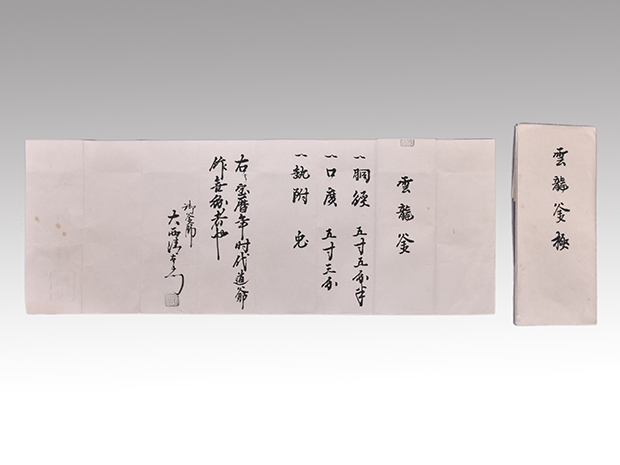 雲龍釜極
雲龍釜
一胴經 五寸五分半
一口廣 五寸三分
一執附
右ハ宝暦年時代道爺
作無疑者也
御釜師
大西清右衛門